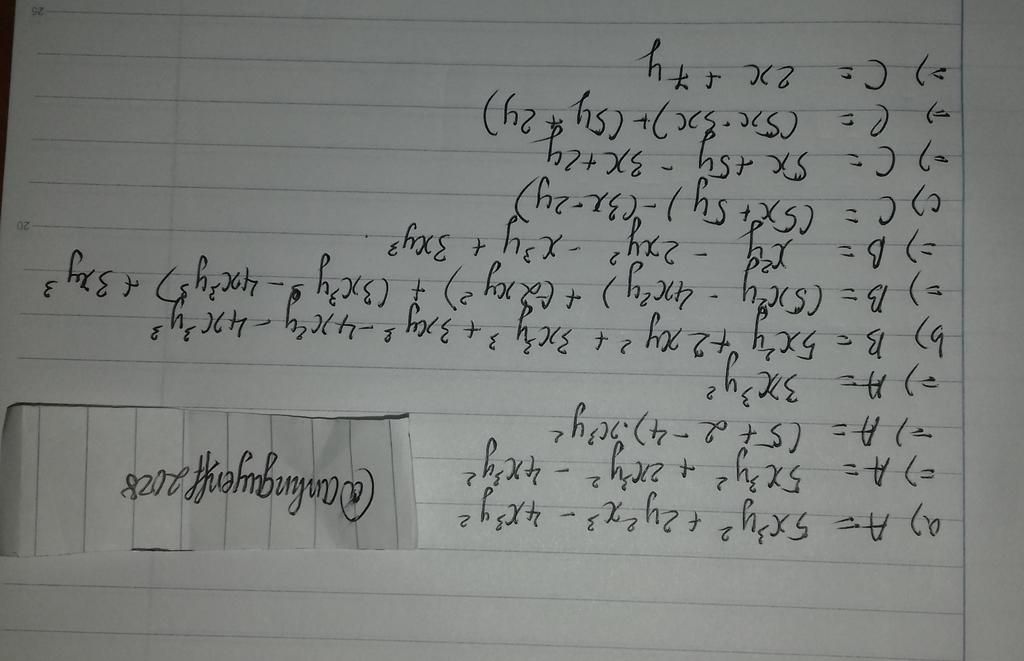 @anhnguyenff2028
a) A = 5x³y² + 2y²x³ - 4x³y²
=) A = 5x³y² + 2x³y² - 4x³y²
=) A = (5 + 2 - 4).x³y²
=) A = 3x³y²
b) B = 5x²y + 2xy² + 3x³y³ + 3xy³ - 4x²y - 4x³y³
=) B = (5x²y - 4x²y) + (-2xy²) + (3x³y³ - 4x³y³) + 3xy³
=) B = x²y - 2xy² - x³y + 3xy³.
20
c) C = (5x + 5y) - (3x - 2y)
=) C = 5x + 5y - 3x + 2y
=) C = (5x - 3x) + (5y + 2y)
=) C = 2x + 7y
25